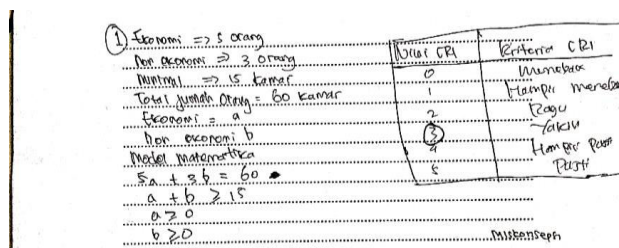 ① Ekonomi => 5 orang
Non ekonomi => 3 orang
minimal => 15 kamar
Total jumlah orang = 60 kamar
Ekonomi = a
Non ekonomi b
Model matematika
5a + 3b = 60
a + b ≥ 15
a ≥ 0
b ≥ 0
Nilai CRI Kriteria CRI
0 Menebak
1 Hampir menebak
2 Ragu
3 Yakin
4 Hampir Pasti
5 Pasti
Miskonsepsi